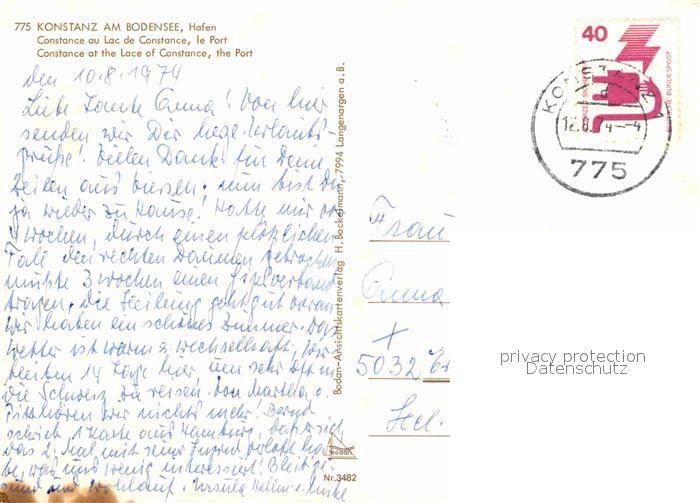 775 KONSTANZ AM BODENSEE, Hafen
Constance au Lac de Constance, le Port
Constance at the Lace of Constance, the Port
den 10.8.1974
Liebe Tante Anna! Von hier
senden wir Dir liebe Urlaubs-
grüße! Vielen Dank für Deine
Zeilen aus Viersen. nun bist Du
ja wieder zu Hause! Hatte mir vor
Wochen, durch einen plötzlichen
Fall den rechten Daumen gebrochen
mußte 3 Wochen einen Gipsverband
tragen, die Heilung geht gut voran
Wir haben ein schönes Zimmer. Das
Wetter ist warm u. wechselhaft, wir
bleiben 14 Tage hier, um sehr oft in
die Schweiz zu reisen. Von Martha
hören wir nichts mehr! Bernd
schrieb 1 Karte aus Hamburg, daß er sich
das 2. Mal mit seiner verlobt ha-
be, was uns wenig interessiert! Bleib ge-
sund und wohlauf. Ursula
Bodan-Ansichtskartenverlag H. Bockelmann, 7994 Langenargen a. B.
bodan
Nr.3482
40
DEUTSCHE BUNDESPOST
KONSTANZ
a
12.8.74--4
775
Frau
Anna
5032
privacy protection
Datenschutz